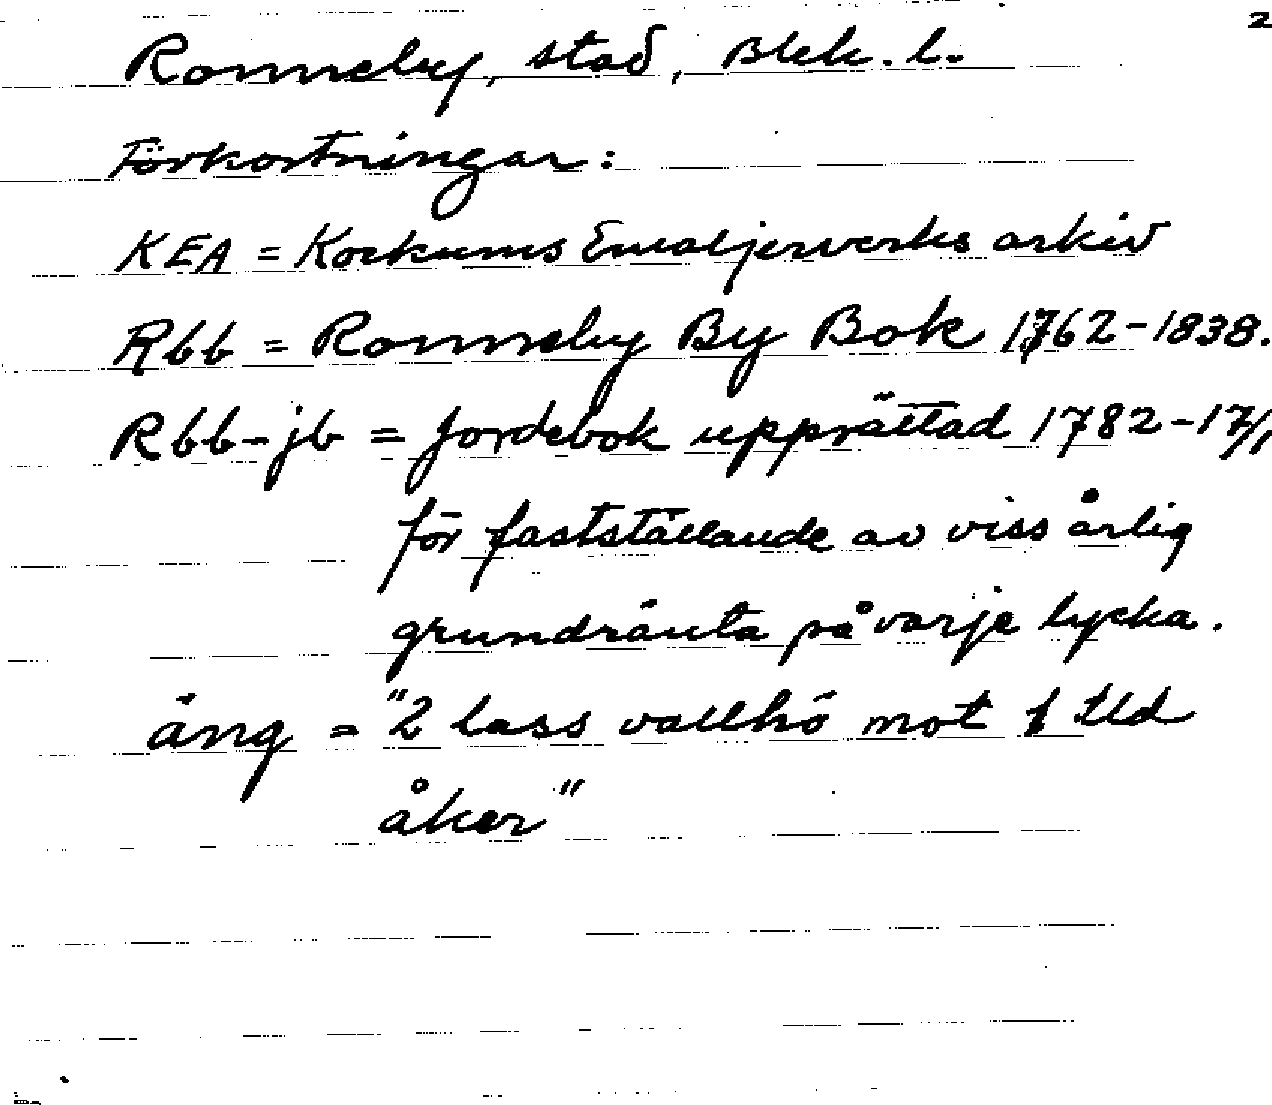 2
Ronneby, stad, Blek. l.
Förkortningar:
KEA = Kockums Emaljerverks arkiv
Rbb = Ronneby By Bok 1762-1838.
Rbb-jb = Jordebok upprättad 1782-17/1
för fastställande av viss årlig
grundränta på varje lycka.
äng = "2 lass vallhö mot 1 tld
åker"